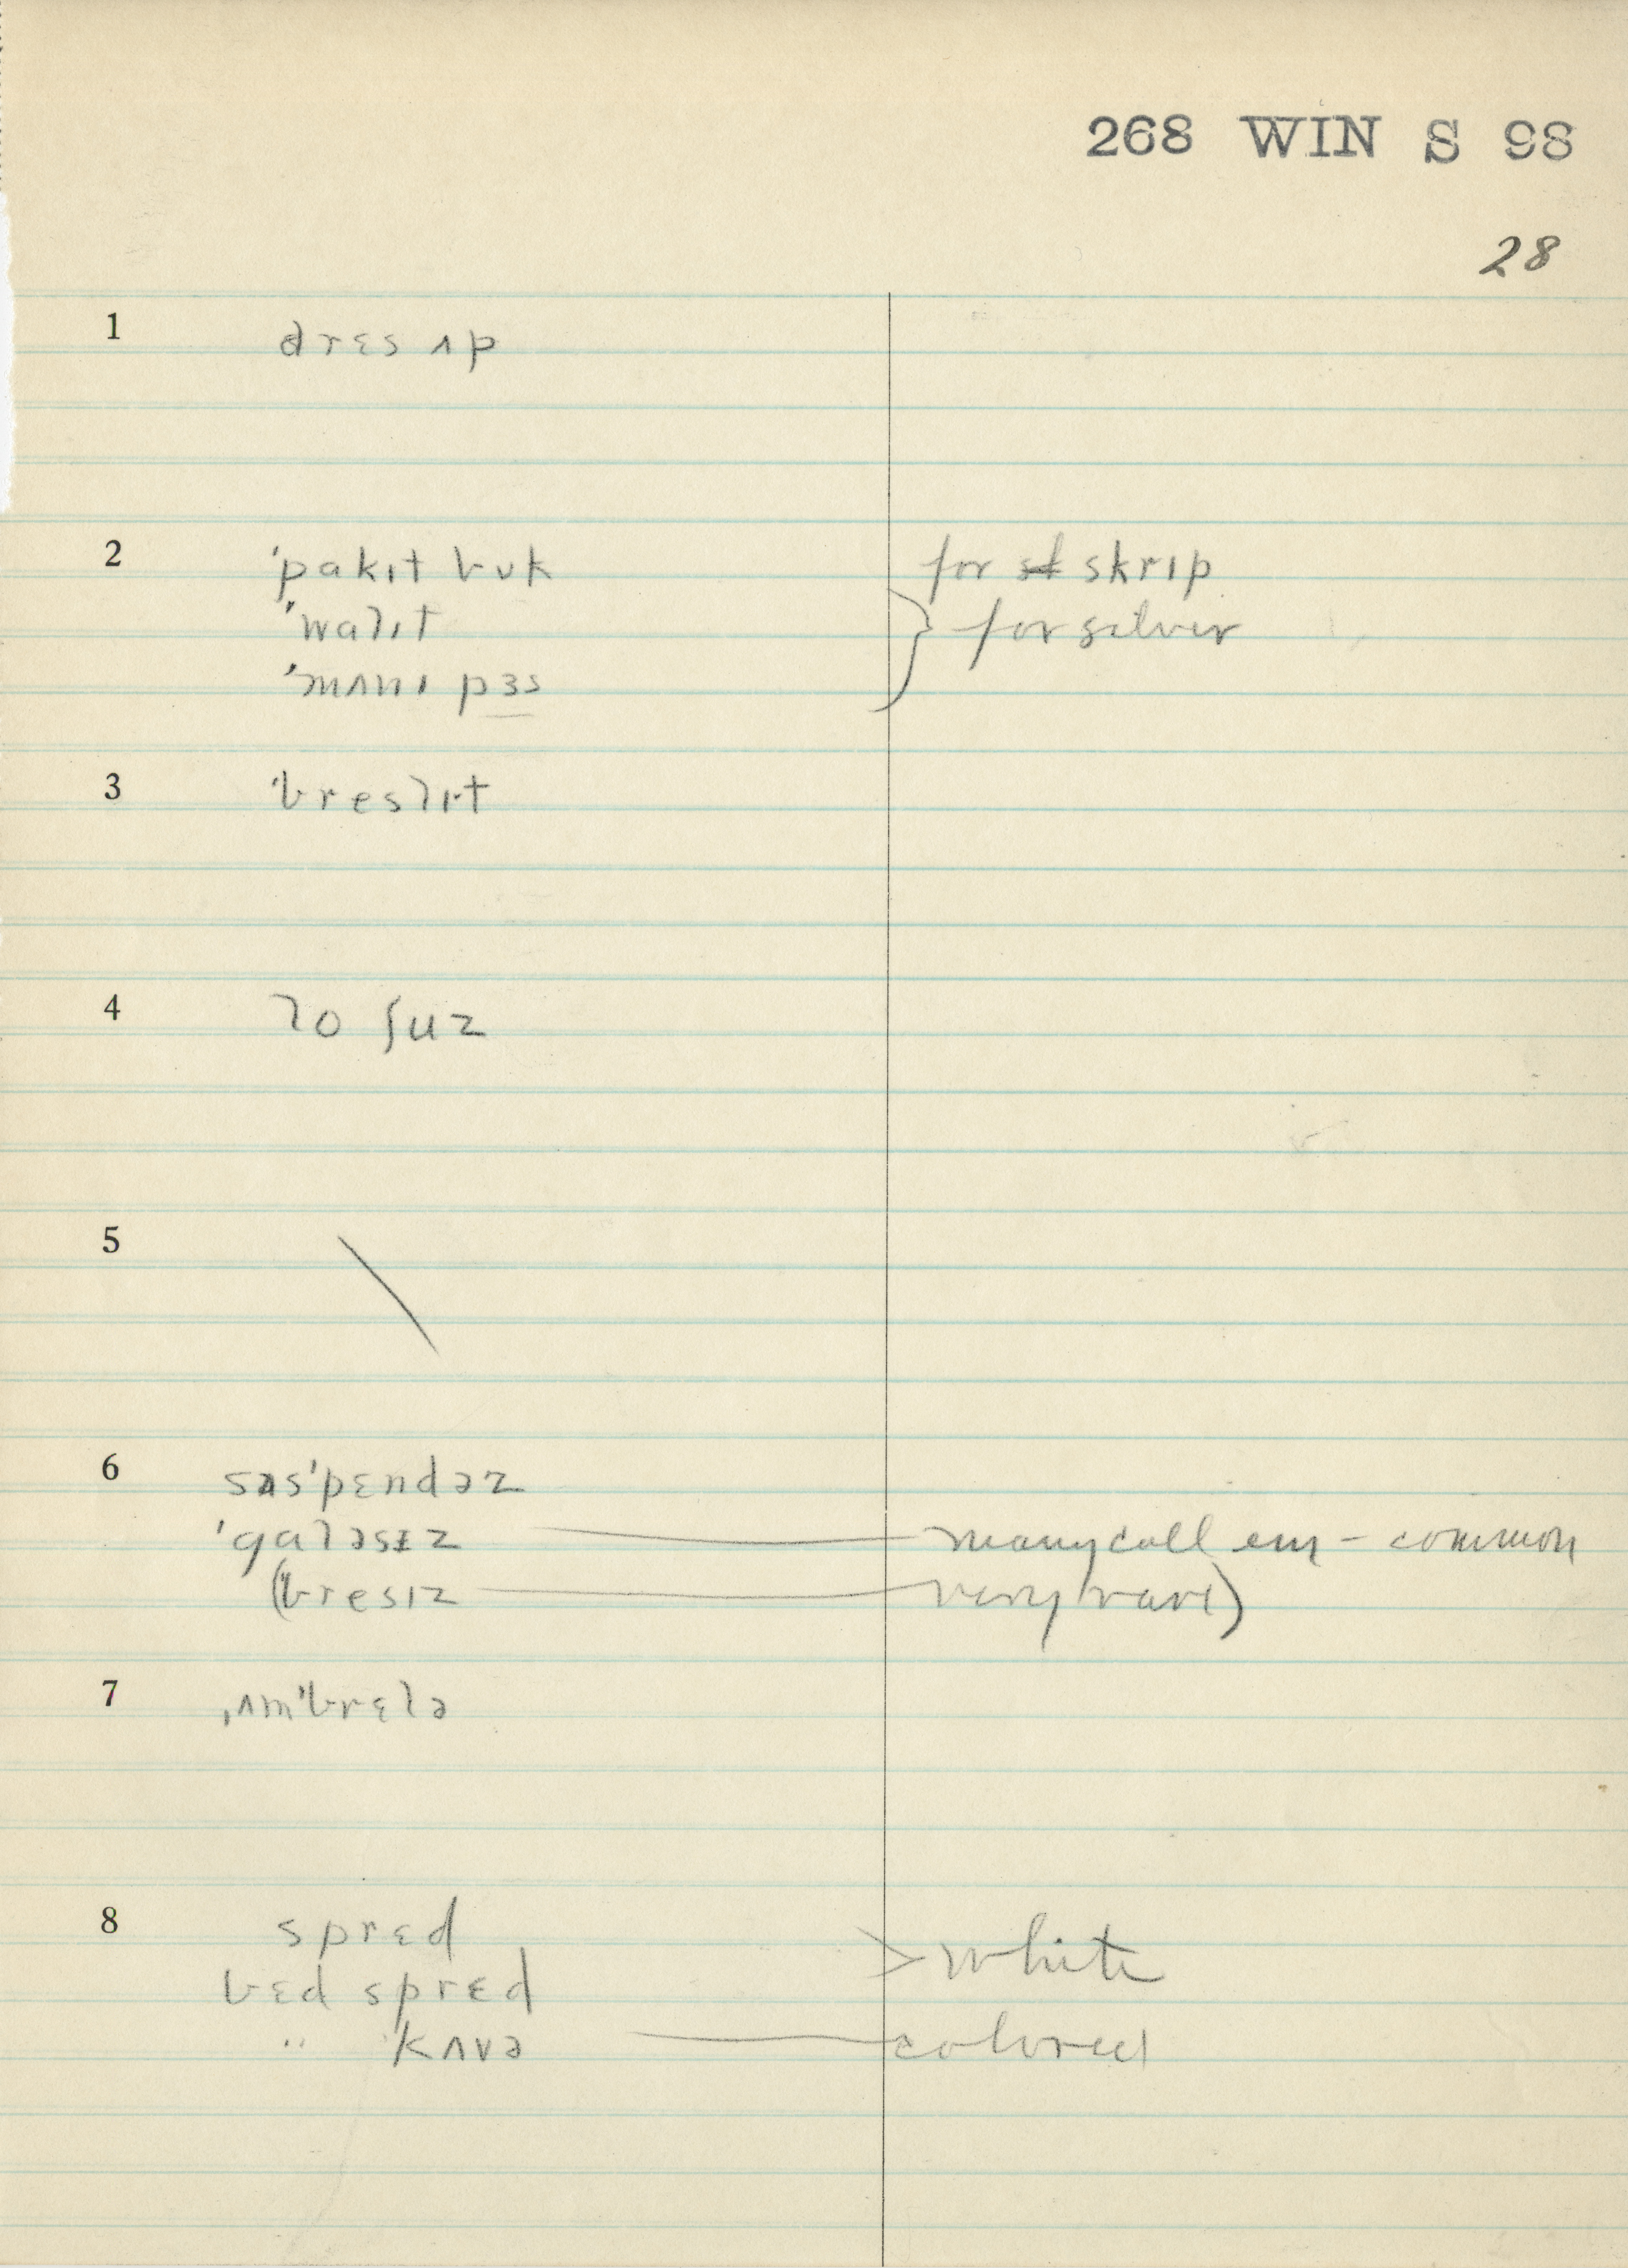 268 WIN S 98
28
1 dres ʌp
2 ˈpakɪt bʊk for skrɪp
ˈwalɪt } for silver
ˈmʌnɪ pɜs
3 ˈbreslɪt
4 lo ʃuz
5 \
6 sʌsˈpɛndəz
ˈgaləsɪz — many call em – common
(bresɪz — very rare)
7 ˌʌmˈbrɛlə
8 sprɛd > white
bɛd sprɛd
" kʌvə — colored